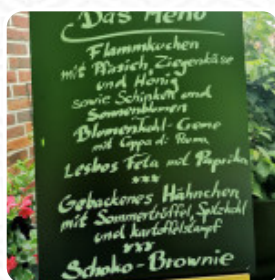 Das Menü
Flammkuchen
mit Pfirsich, Ziegenkäse
und Honig
sowie Schinken und
Sonnenblumen
Blumenkohl-Creme
mit Coppa di Parma
Lesbos Feta mit Paprika
***
Gebackenes Hähnchen
mit Sommertrüffel, Spitzkohl
und Kartoffelstampf
***
Schoko-Brownie